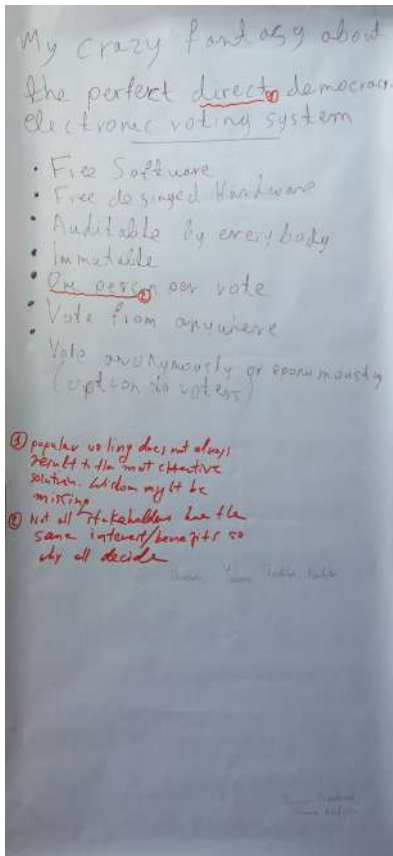 My crazy fantasy about
the perfect direct ① democracy
electronic voting system
• Free Software
• Free desinged Hardware
• Auditable by everybody
• Immutable
• One person ② one vote
• Vote from anywhere
• Vote anonymously or eponymously
(option to voters)
① popular voting does not always
result to the most effective
solution. Wisdom might be
missing
② Not all stakeholders have the
same interest/benefits so
why all decide